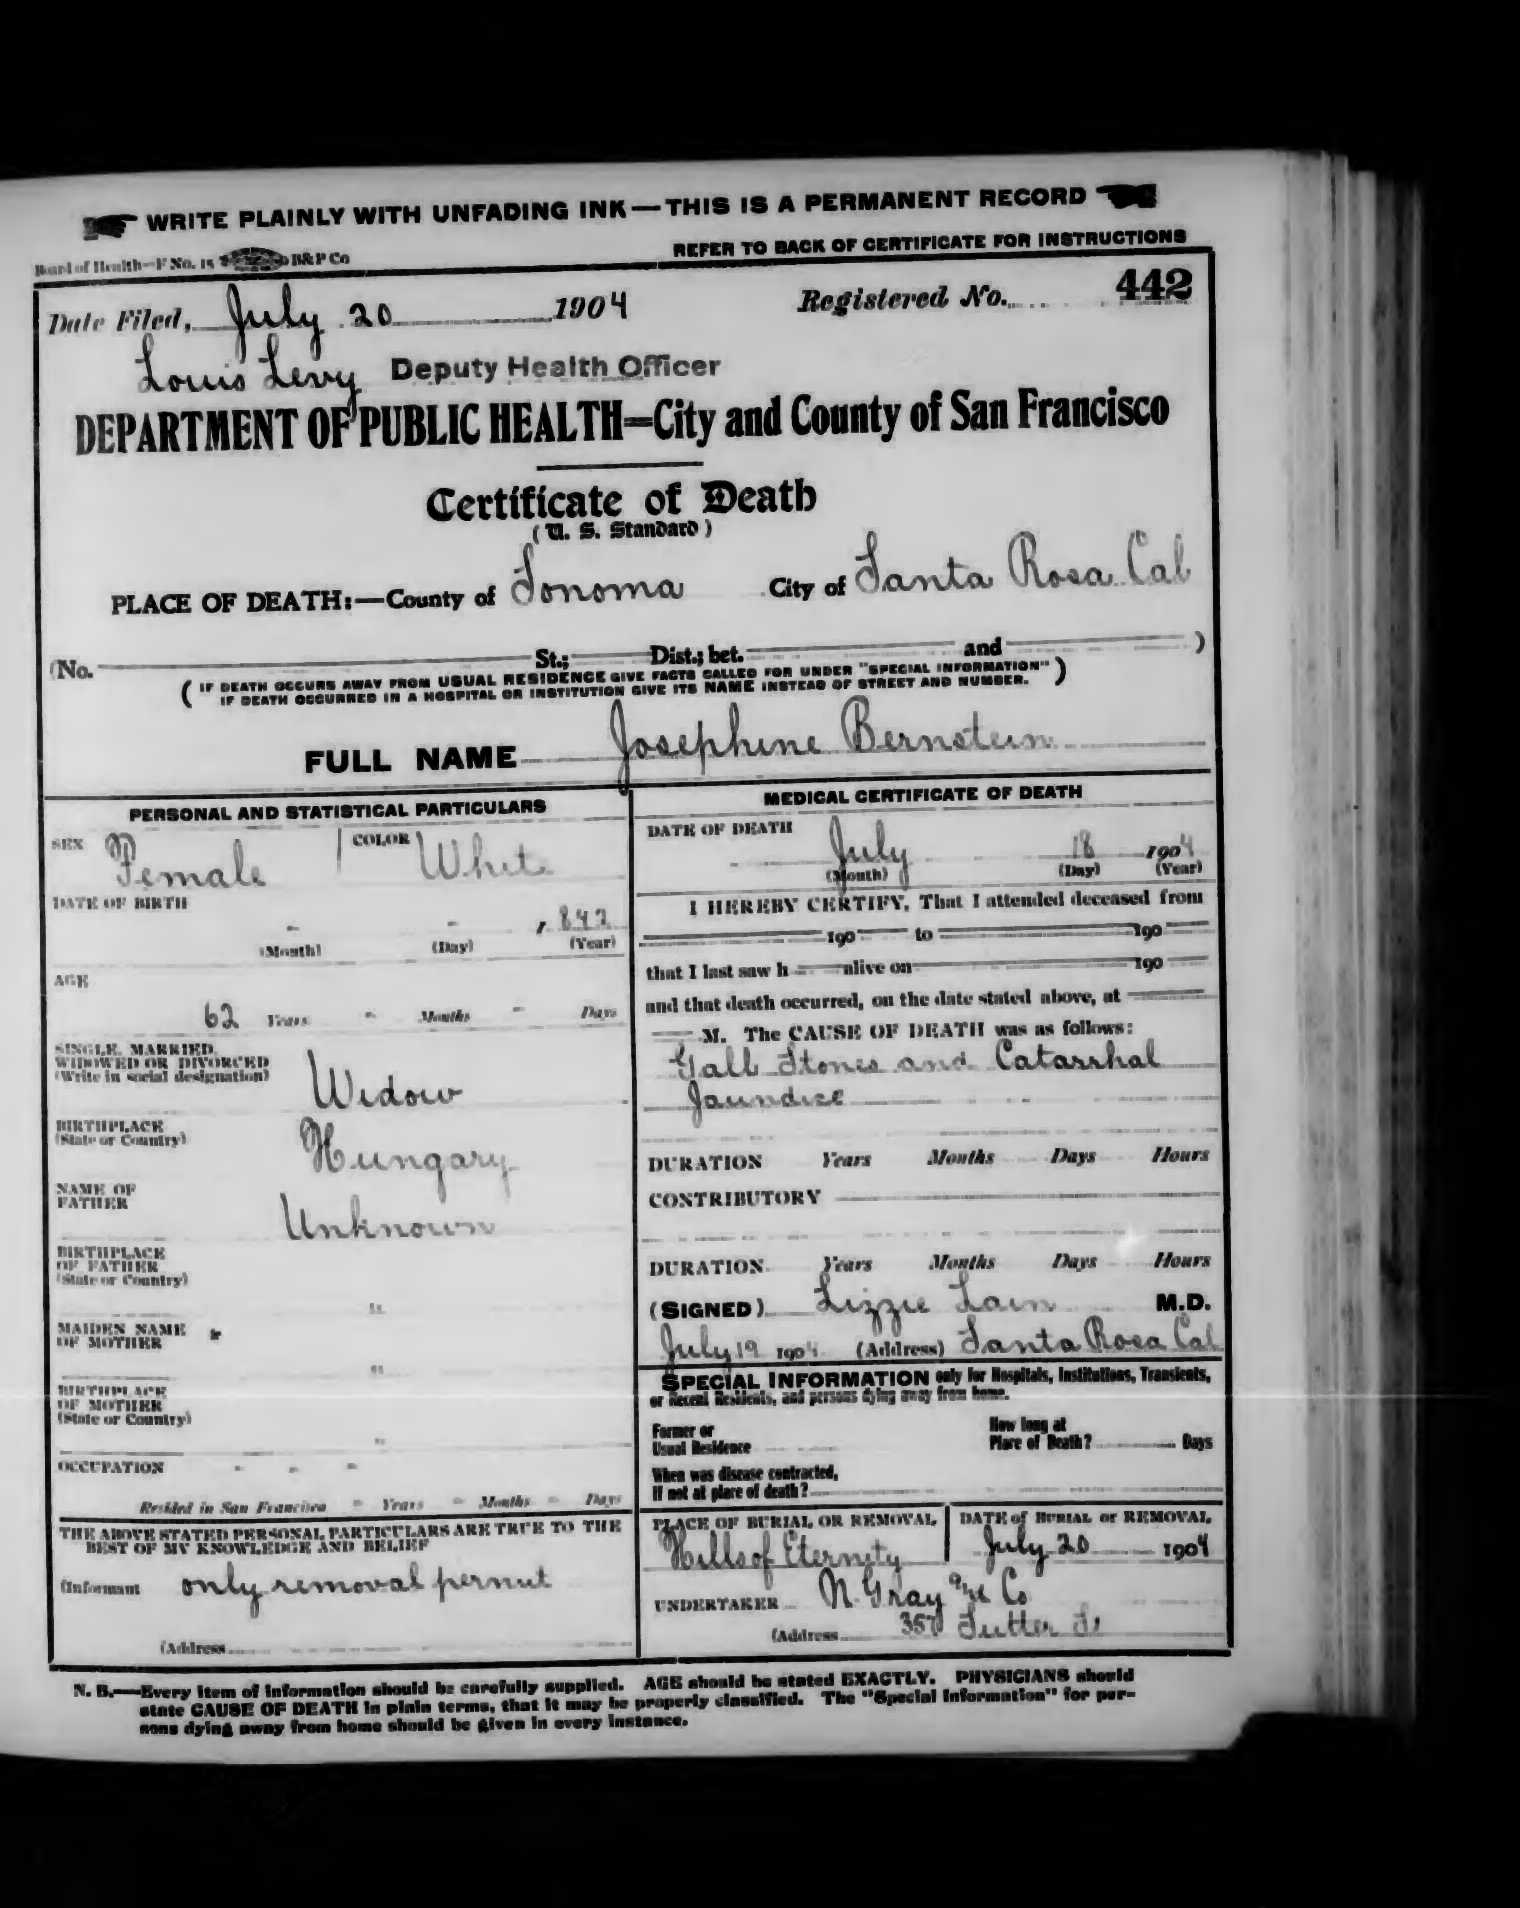 WRITE PLAINLY WITH UNFADING INK—THIS IS A PERMANENT RECORD
REFER TO BACK OF CERTIFICATE FOR INSTRUCTIONS
Board of Health—F No. 15 B&P Co
Date Filed, July 20 1904 Registered No. 442
Louis Levy Deputy Health Officer
DEPARTMENT OF PUBLIC HEALTH=City and County of San Francisco
Certificate of Death
(U. S. Standard)
PLACE OF DEATH:—County of Sonoma City of Santa Rosa Cal
(No. St.; Dist.; bet. and )
(IF DEATH OCCURS AWAY FROM USUAL RESIDENCE GIVE FACTS CALLED FOR UNDER "SPECIAL INFORMATION"
IF DEATH OCCURRED IN A HOSPITAL OR INSTITUTION GIVE ITS NAME INSTEAD OF STREET AND NUMBER.)
FULL NAME Josephine Bernstein
PERSONAL AND STATISTICAL PARTICULARS
SEX Female COLOR White
DATE OF BIRTH
- - , 842
(Month) (Day) (Year)
AGE
62 Years - Months - Days
SINGLE, MARRIED,
WIDOWED OR DIVORCED
(Write in social designation) Widow
BIRTHPLACE
(State or Country) Hungary
NAME OF
FATHER Unknown
BIRTHPLACE
OF FATHER
(State or Country)
"
MAIDEN NAME
OF MOTHER
"
BIRTHPLACE
OF MOTHER
(State or Country)
"
OCCUPATION - - -
Resided in San Francisco - Years - Months - Days
THE ABOVE STATED PERSONAL PARTICULARS ARE TRUE TO THE
BEST OF MY KNOWLEDGE AND BELIEF
(Informant only removal permit
(Address
MEDICAL CERTIFICATE OF DEATH
DATE OF DEATH
July 18 1904
(Month) (Day) (Year)
I HEREBY CERTIFY, That I attended deceased from
190 to 190
that I last saw h alive on 190
and that death occurred, on the date stated above, at
M. The CAUSE OF DEATH was as follows:
Gall Stones and Catarrhal
Jaundice
DURATION Years Months Days Hours
CONTRIBUTORY
DURATION Years Months Days Hours
(SIGNED) Lizzie Lain M.D.
July 19 1904 (Address) Santa Rosa Cal
SPECIAL INFORMATION only for Hospitals, Institutions, Transients,
or Recent Residents, and persons dying away from home.
Former or
Usual Residence
How long at
Place of Death? Days
When was disease contracted,
If not at place of death?
PLACE OF BURIAL OR REMOVAL
Hills of Eternity
DATE of BURIAL or REMOVAL
July 20 1904
UNDERTAKER N. Gray and Co
(Address 357 Sutter St
N. B.—Every item of information should be carefully supplied. AGE should be stated EXACTLY. PHYSICIANS should
state CAUSE OF DEATH in plain terms, that it may be properly classified. The "Special Information" for per-
sons dying away from home should be given in every instance.